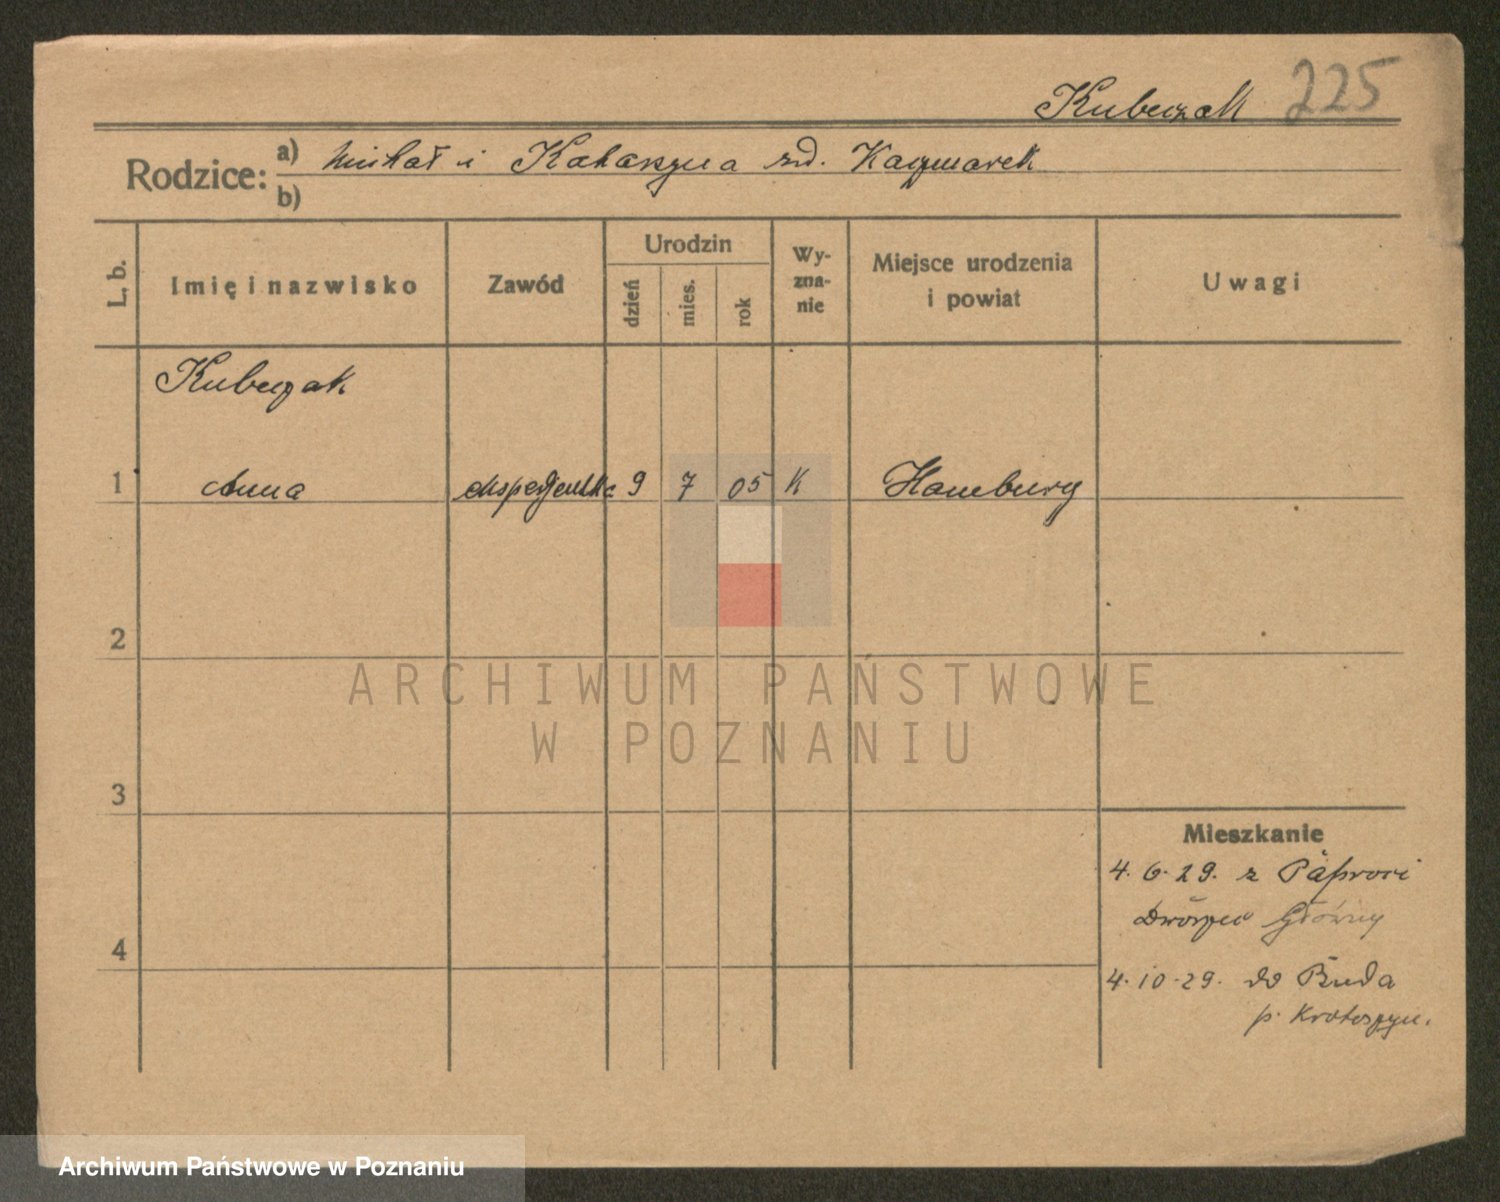 Kubeczak 225
Rodzice: a) Michał i Katarzyna zd. Kaczmarek
b)
L. b. Imię i nazwisko Zawód Urodzin dzień mies. rok Wyznanie Miejsce urodzenia i powiat Uwagi
Kubeczak
1 Anna ekspedjentka 9 7 05 K Hamburg
2
ARCHIWUM PAŃSTWOWE
W POZNANIU
3
Mieszkanie
4. 6. 29. z Paproci
Dworzec Główny
4
4. 10. 29. do Buda
p. Krotoszyn.
Archiwum Państwowe w Poznaniu